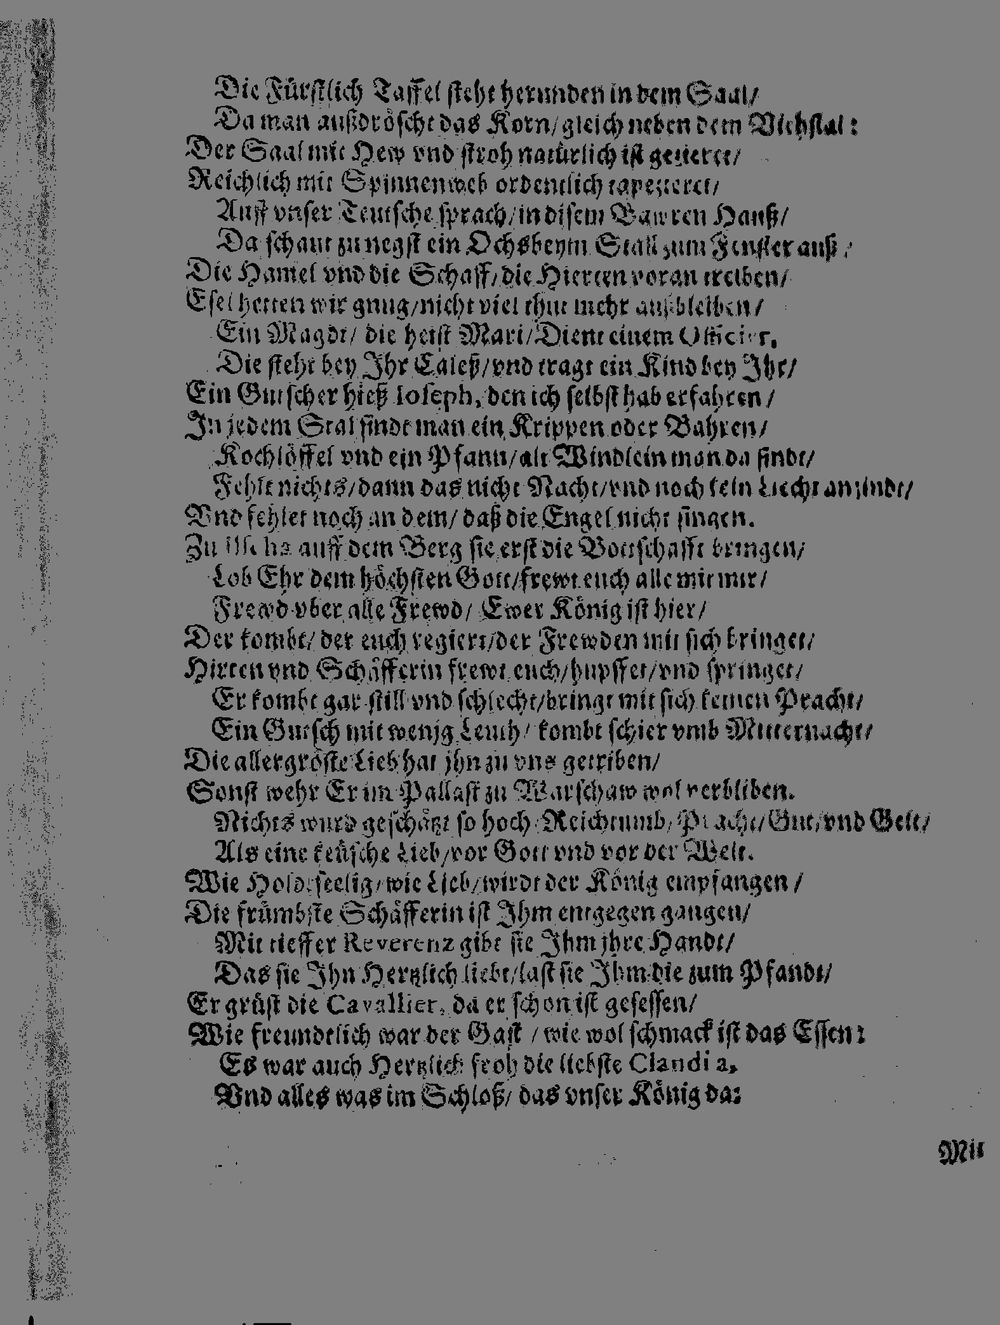 Die Fürstlich Taffel steht herunden in dem Saal/
Da man außdröscht das Korn/gleich neben dem Viehstal:
Der Saal mit Hew vnd stroh natürlich ist gezieret/
Reichlich mit Spinnenweb ordentlich tapezeret/
Auff vnser Teutsche sprach/in disem Bawren Hauß/
Da schaut zu negst ein Ochs beym Stall zum Fenster auß/
Die Hamel vnd die Schaff/die Hierten voran treiben/
Esel hetten wir gnug/nicht viel thut mehr außbleiben/
Ein Magdt/ die heist Mari/Dient einem Officier.
Die steht bey Ihr Caleß/vnd tragt ein Kind bey Ihr/
Ein Gutscher hieß Ioseph, den ich selbst hab erfahren/
In jedem Stal findt man ein Krippen oder Bahren/
Kochlöffel vnd ein Pfann/alt Windlein man da findt/
Fehlt nichts/dann das nicht Nacht/vnd noch kein Liecht anzindt/
Vnd fehlet noch an dem/ daß die Engel nicht singen.
Zu auff dem Berg sie erst die Bottschafft bringen/
Lob Ehr dem höchsten Gott/frewt euch alle mit mir/
Frewd vber alle Frewd/ Ewer König ist hier/
Der kombt/ der euch regiert/der Frewden mit sich bringet/
Hirten vnd Schäfferin frewt euch/hupffet/vnd springet/
Er kombt gar still vnd schlecht/bringt mit sich keinen Pracht/
Ein Gutsch mit wenig Leuth/ kombt schier vmb Mitternacht/
Die allergröste Lieb hat jhn zu vns getriben/
Sonst wehr Er im Pallast zu Warschaw wol verbliben.
Nichts wurd geschätzt so hoch/Reichtumb/Pracht/Gut/vnd Gelt/
Als eine keüsche Lieb/vor Gott vnd vor der Welt.
Wie Holdtseelig/wie Lieb/wirdt der König empfangen/
Die frümbste Schäfferin ist Ihm entgegen gangen/
Mit tieffer Reverenz gibt sie Ihm jhre Handt/
Das sie Ihn Hertzlich liebt/last sie Ihm die zum Pfandt/
Er grüst die Cavallier, da er schon ist gesessen/
Wie freundtlich war der Gast/wie wol schmackt ist das Essen:
Es war auch Hertzlich froh die liebste Claudia,
Vnd alles was im Schloß/ das vnser König da:
Mit